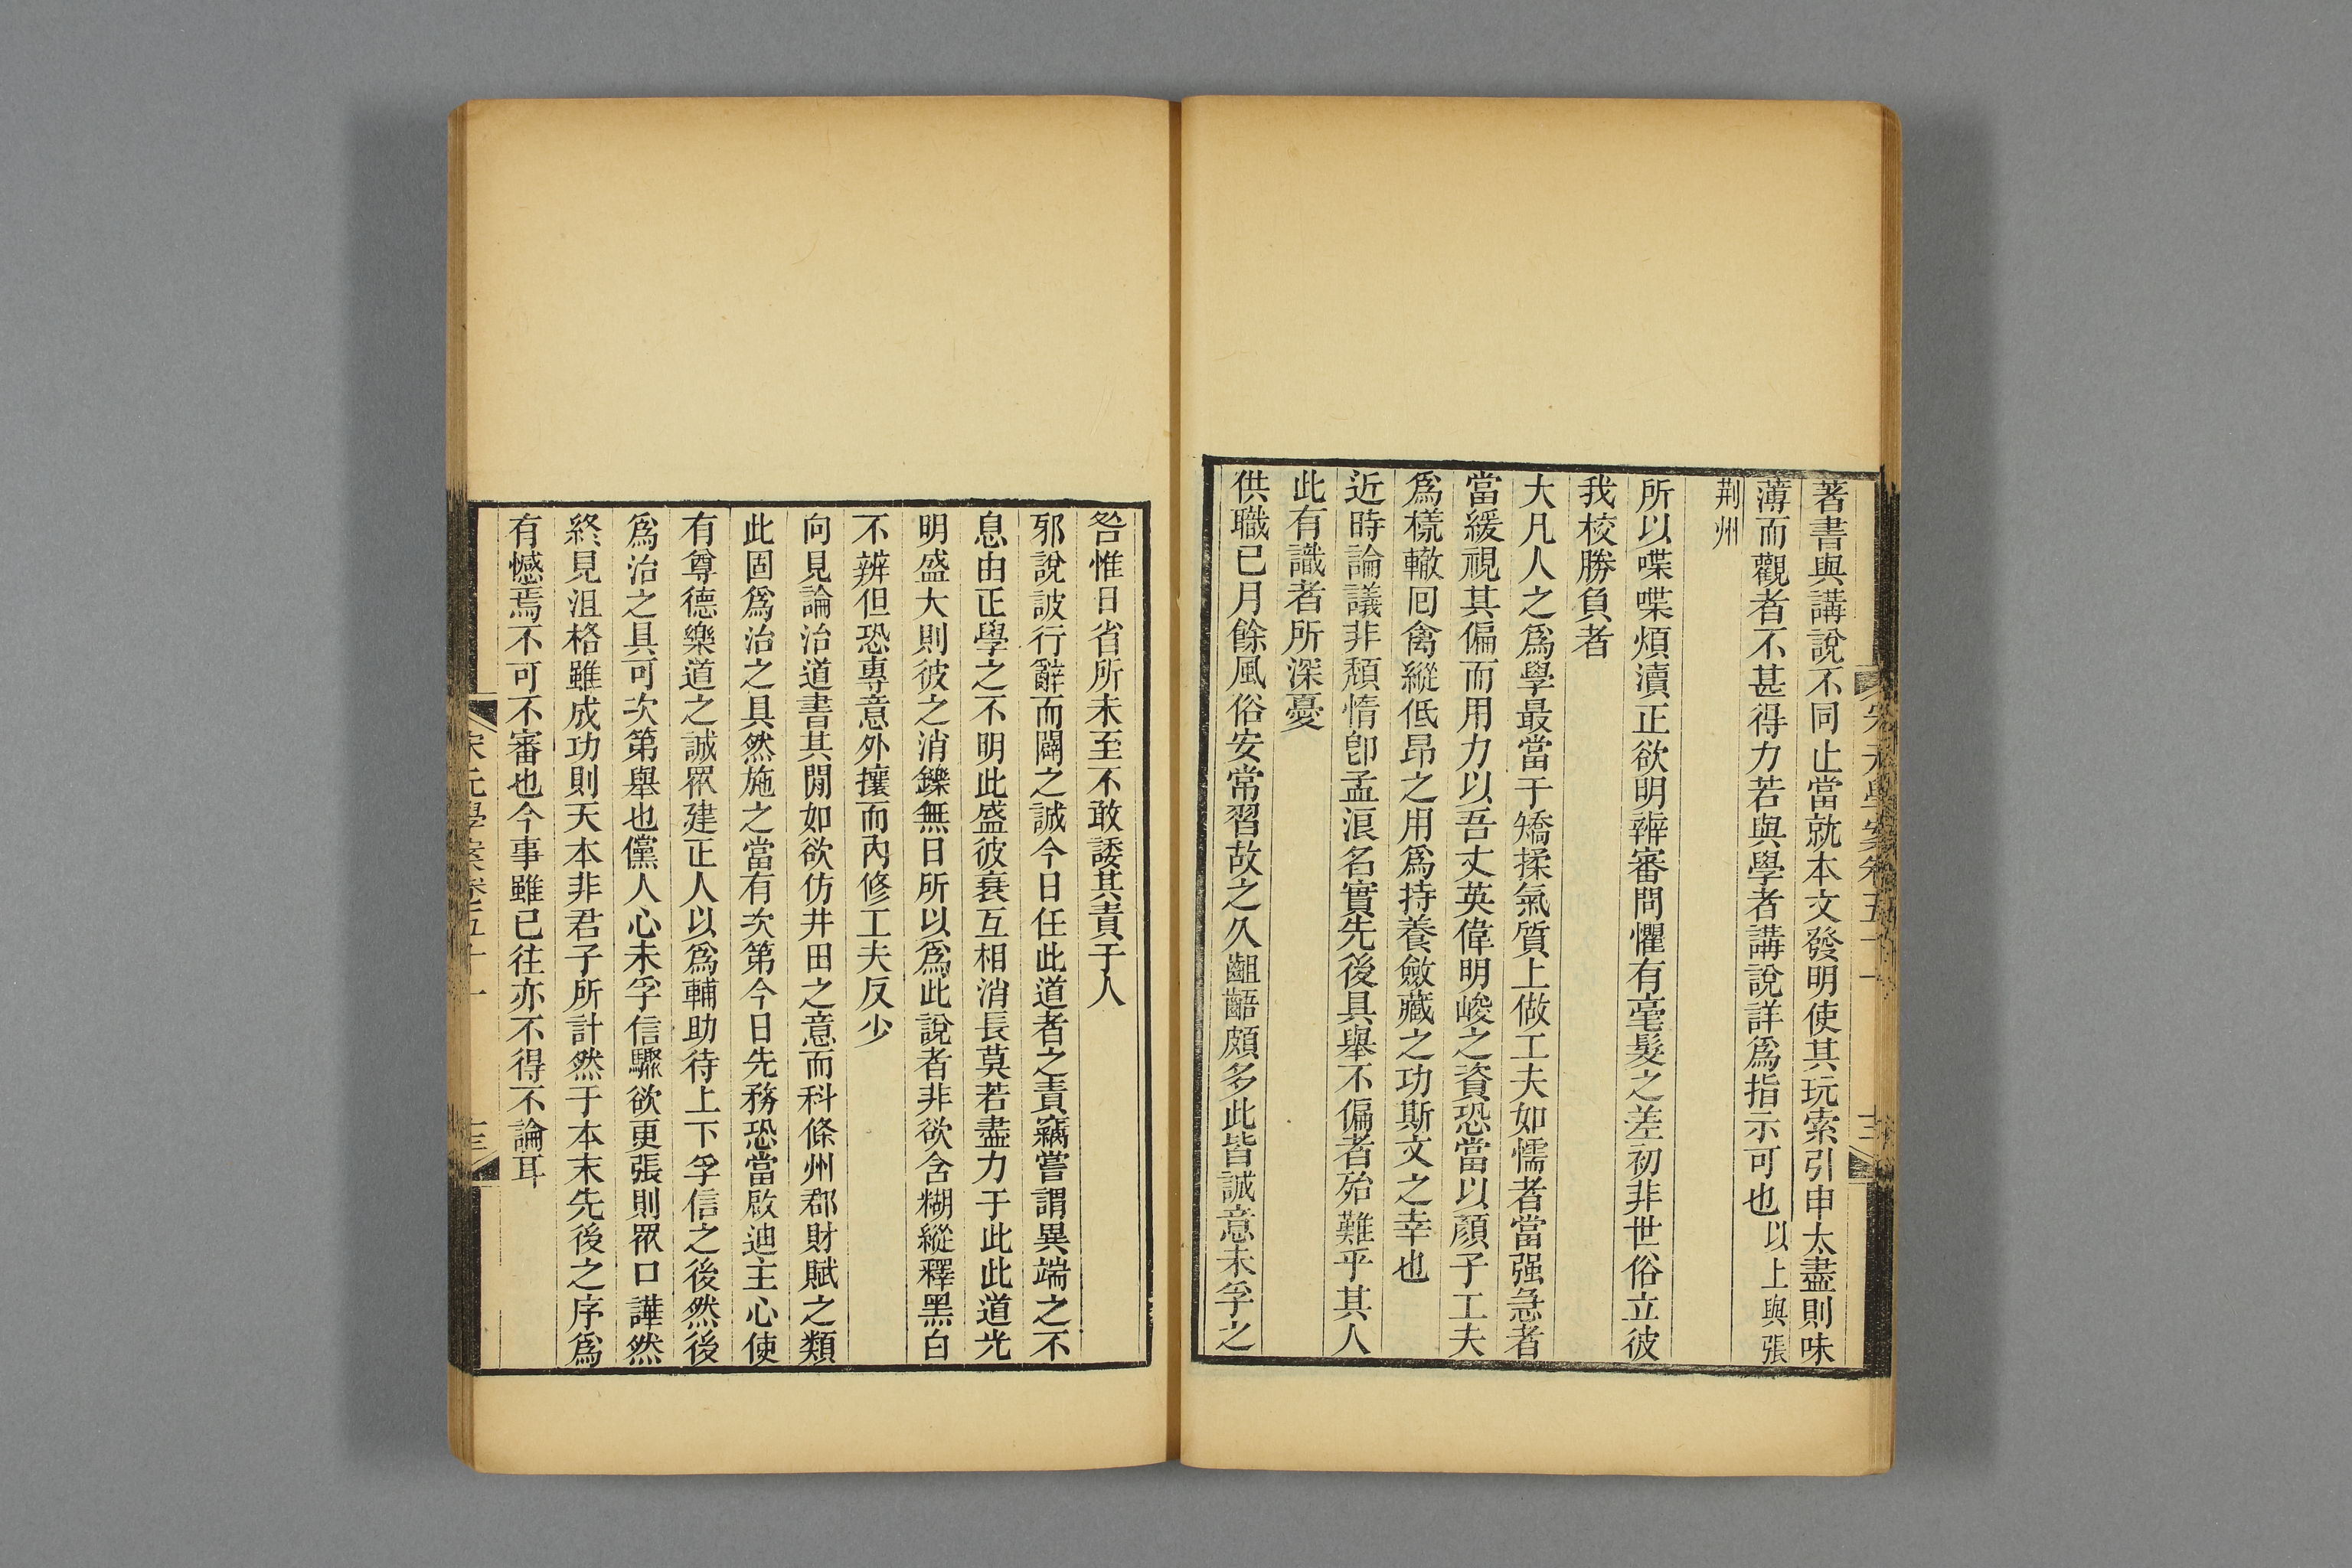 著書與講說不同止當就本文發明使其玩索引申太盡則味
薄而觀者不甚得力若與學者講說詳爲指示可也以上與張
荆州
所以喋喋煩瀆正欲明辨審問懼有毫髮之差初非世俗立彼
我校勝負者
大凡人之爲學最當于矯揉氣質上做工夫如懦者當强急者
當緩視其偏而用力以吾丈英偉明峻之資恐當以顏子工夫
爲樣轍囘禽縱低昂之用爲持養斂藏之功斯文之幸也
近時論議非頹惰卽孟浪名實先後具舉不偏者殆難乎其人
此有識者所深憂
供職已月餘風俗安常習故之久齟齬頗多此皆誠意未孚之
咎惟日省所未至不敢諉其責于人
邪說詖行辭而闢之誠今日任此道者之責竊嘗謂異端之不
息由正學之不明此盛彼衰互相消長莫若盡力于此此道光
明盛大則彼之消鑠無日所以爲此說者非欲含糊縱釋黑白
不辨但恐專意外攘而內修工夫反少
向見論治道書其閒如欲仿井田之意而科條州郡財賦之類
此固爲治之具然施之當有次第今日先務恐當啟迪主心使
有尊德樂道之誠眾建正人以爲輔助待上下孚信之後然後
爲治之具可次第舉也儻人心未孚信驟欲更張則眾口譁然
終見沮格雖成功則天本非君子所計然于本末先後之序爲
有憾焉不可不審也今事雖已往亦不得不論耳
宋元學案卷五十一